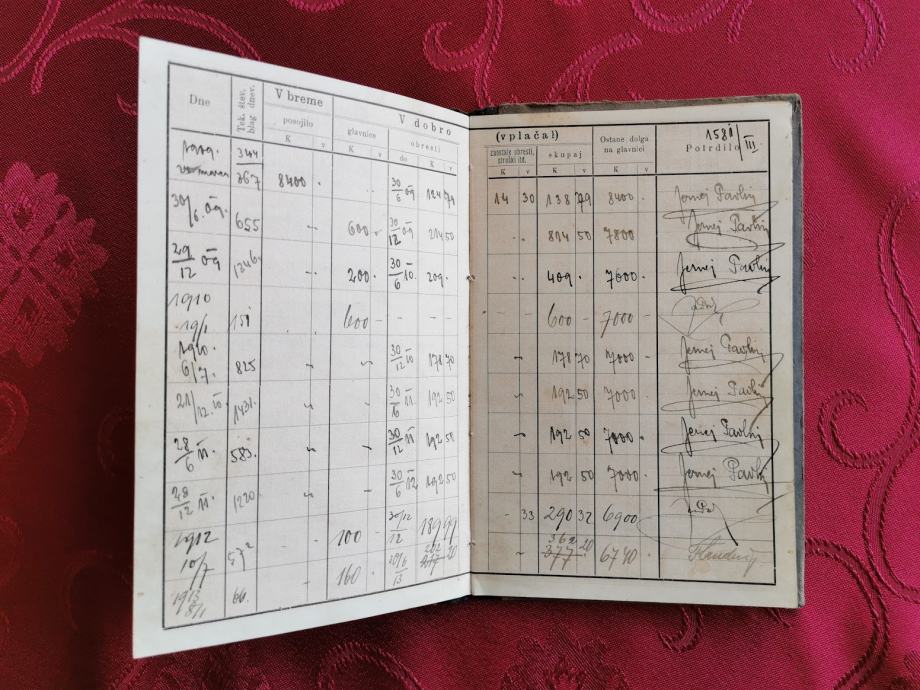 Dne
Tek. štev. blag. dnev.
V breme
posojilo
K v
V dobro
glavnice
K v
obresti
do K v
(vplačal)
zaostale obresti, stroški itd.
K v
skupaj
K v
Ostane dolga na glavnici
K v
1581/III.
Potrdilo
1909. 344
367 8400 . 30/6 09 124 49 14 30 138 79 8400 . Jernej Pavlin
30/6. 09. 655 600 30/12 09 214 50 814 50 7800 Jernej Pavlin
29/12 09 1346. 200 . 30/6 10. 209 . 409 . 7600 . Jernej Pavlin
1910
19/1 151 600 – – – – – 600 – 7000 –
1910.
6/7. 825 30/12 10 178 70 178 70 7000 Jernej Pavlin
21/12. 10. 1431. 30/6 11 192 50 192 50 7000 . Jernej Pavlin
28/6 11. 583. 30/12 11 192 50 192 50 7000 . Jernej Pavlin
28/12 11. 1220 30/6 12 192 50 192 50 7000 . Jernej Pavlin
1912
10/7 572 100 – 30/12 12 189 99 – 33 290 32 6900
1913
8/1 66. 160 . 30/6 13 202 20 362 20 377 6740 .